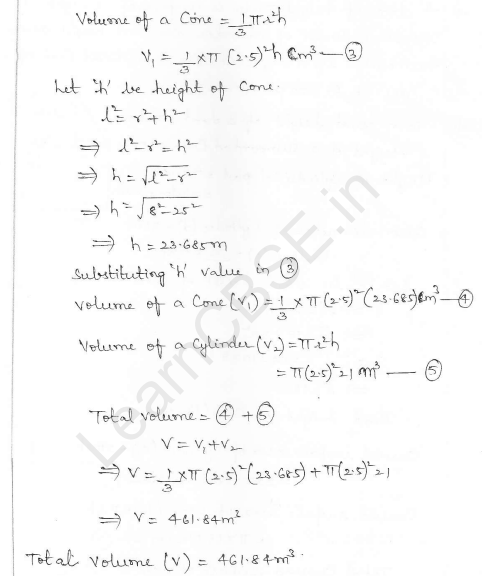 Volume of a Cone = 1/3 πr²h
V₁ = 1/3 × π (2.5)²h cm³ — ③
Let 'h' be height of Cone.
l² = r² + h²
⇒ l² - r² = h²
⇒ h = √l² - r²
⇒ h = √8² - 25²
⇒ h = 23.685m
Substituting 'h' value in ③
Volume of a Cone (V₁) = 1/3 × π (2.5)² (23.685) cm³ — ④
Volume of a Cylinder (V₂) = πr²h
= π(2.5)² 21 m³ — ⑤
Total volume = ④ + ⑤
V = V₁ + V₂
⇒ V = 1/3 × π (2.5)² (23.685) + π(2.5)² 21
⇒ V = 461.84m²
Total Volume (V) = 461.84m³.
LearnCBSE.in